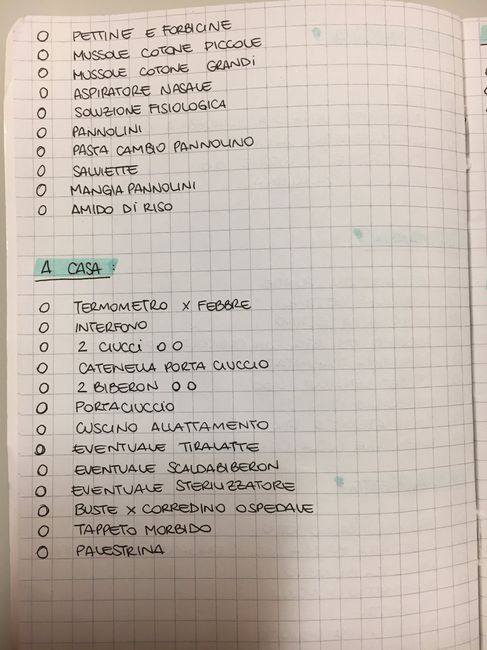 O PETTINE E FORBICINE
O MUSSOLE COTONE PICCOLE
O MUSSOLE COTONE GRANDI
O ASPIRATORE NASALE
O SOLUZIONE FISIOLOGICA
O PANNOLINI
O PASTA CAMBIO PANNOLINO
O SALVIETTE
O MANGIA PANNOLINI
O AMIDO DI RISO
A CASA:
O TERMOMETRO X FEBBRE
O INTERFONO
O 2 CIUCCI O O
O CATENELLA PORTA CIUCCIO
O 2 BIBERON O O
O PORTACIUCCIO
O CUSCINO ALLATTAMENTO
O EVENTUALE TIRALATTE
O EVENTUALE SCALDABIBERON
O EVENTUALE STERILIZZATORE
O BUSTE X CORREDINO OSPEDALE
O TAPPETO MORBIDO
O PALESTRINA